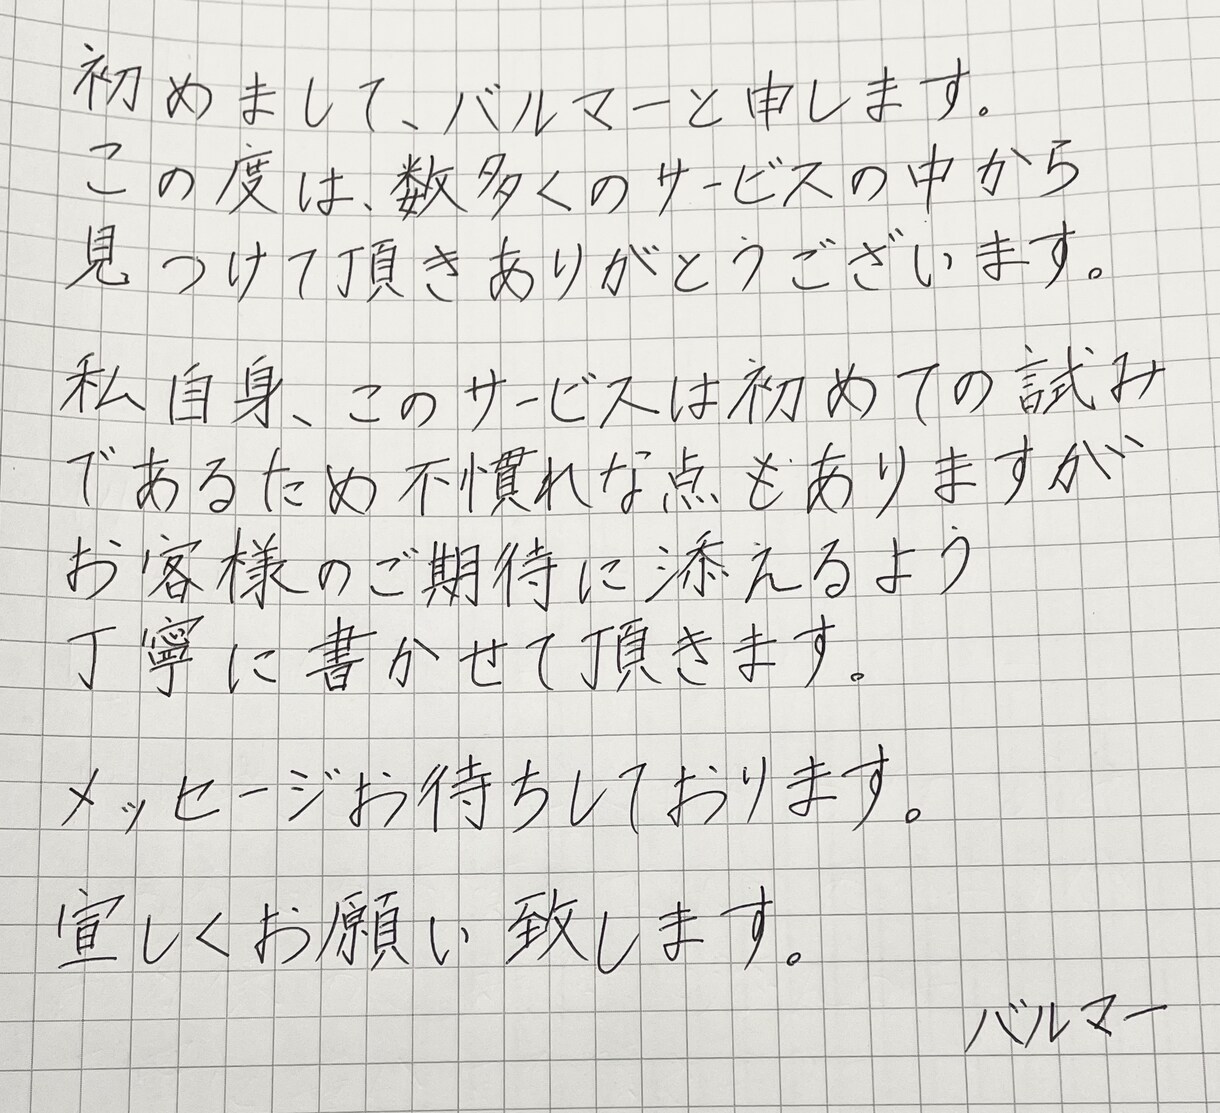 初めまして、バルマーと申します。
この度は、数多くのサービスの中から
見つけて頂きありがとうございます。
私自身、このサービスは初めての試み
であるため不慣れな点もありますが
お客様のご期待に添えるよう
丁寧に書かせて頂きます。
メッセージお待ちしております。
宜しくお願い致します。
バルマー